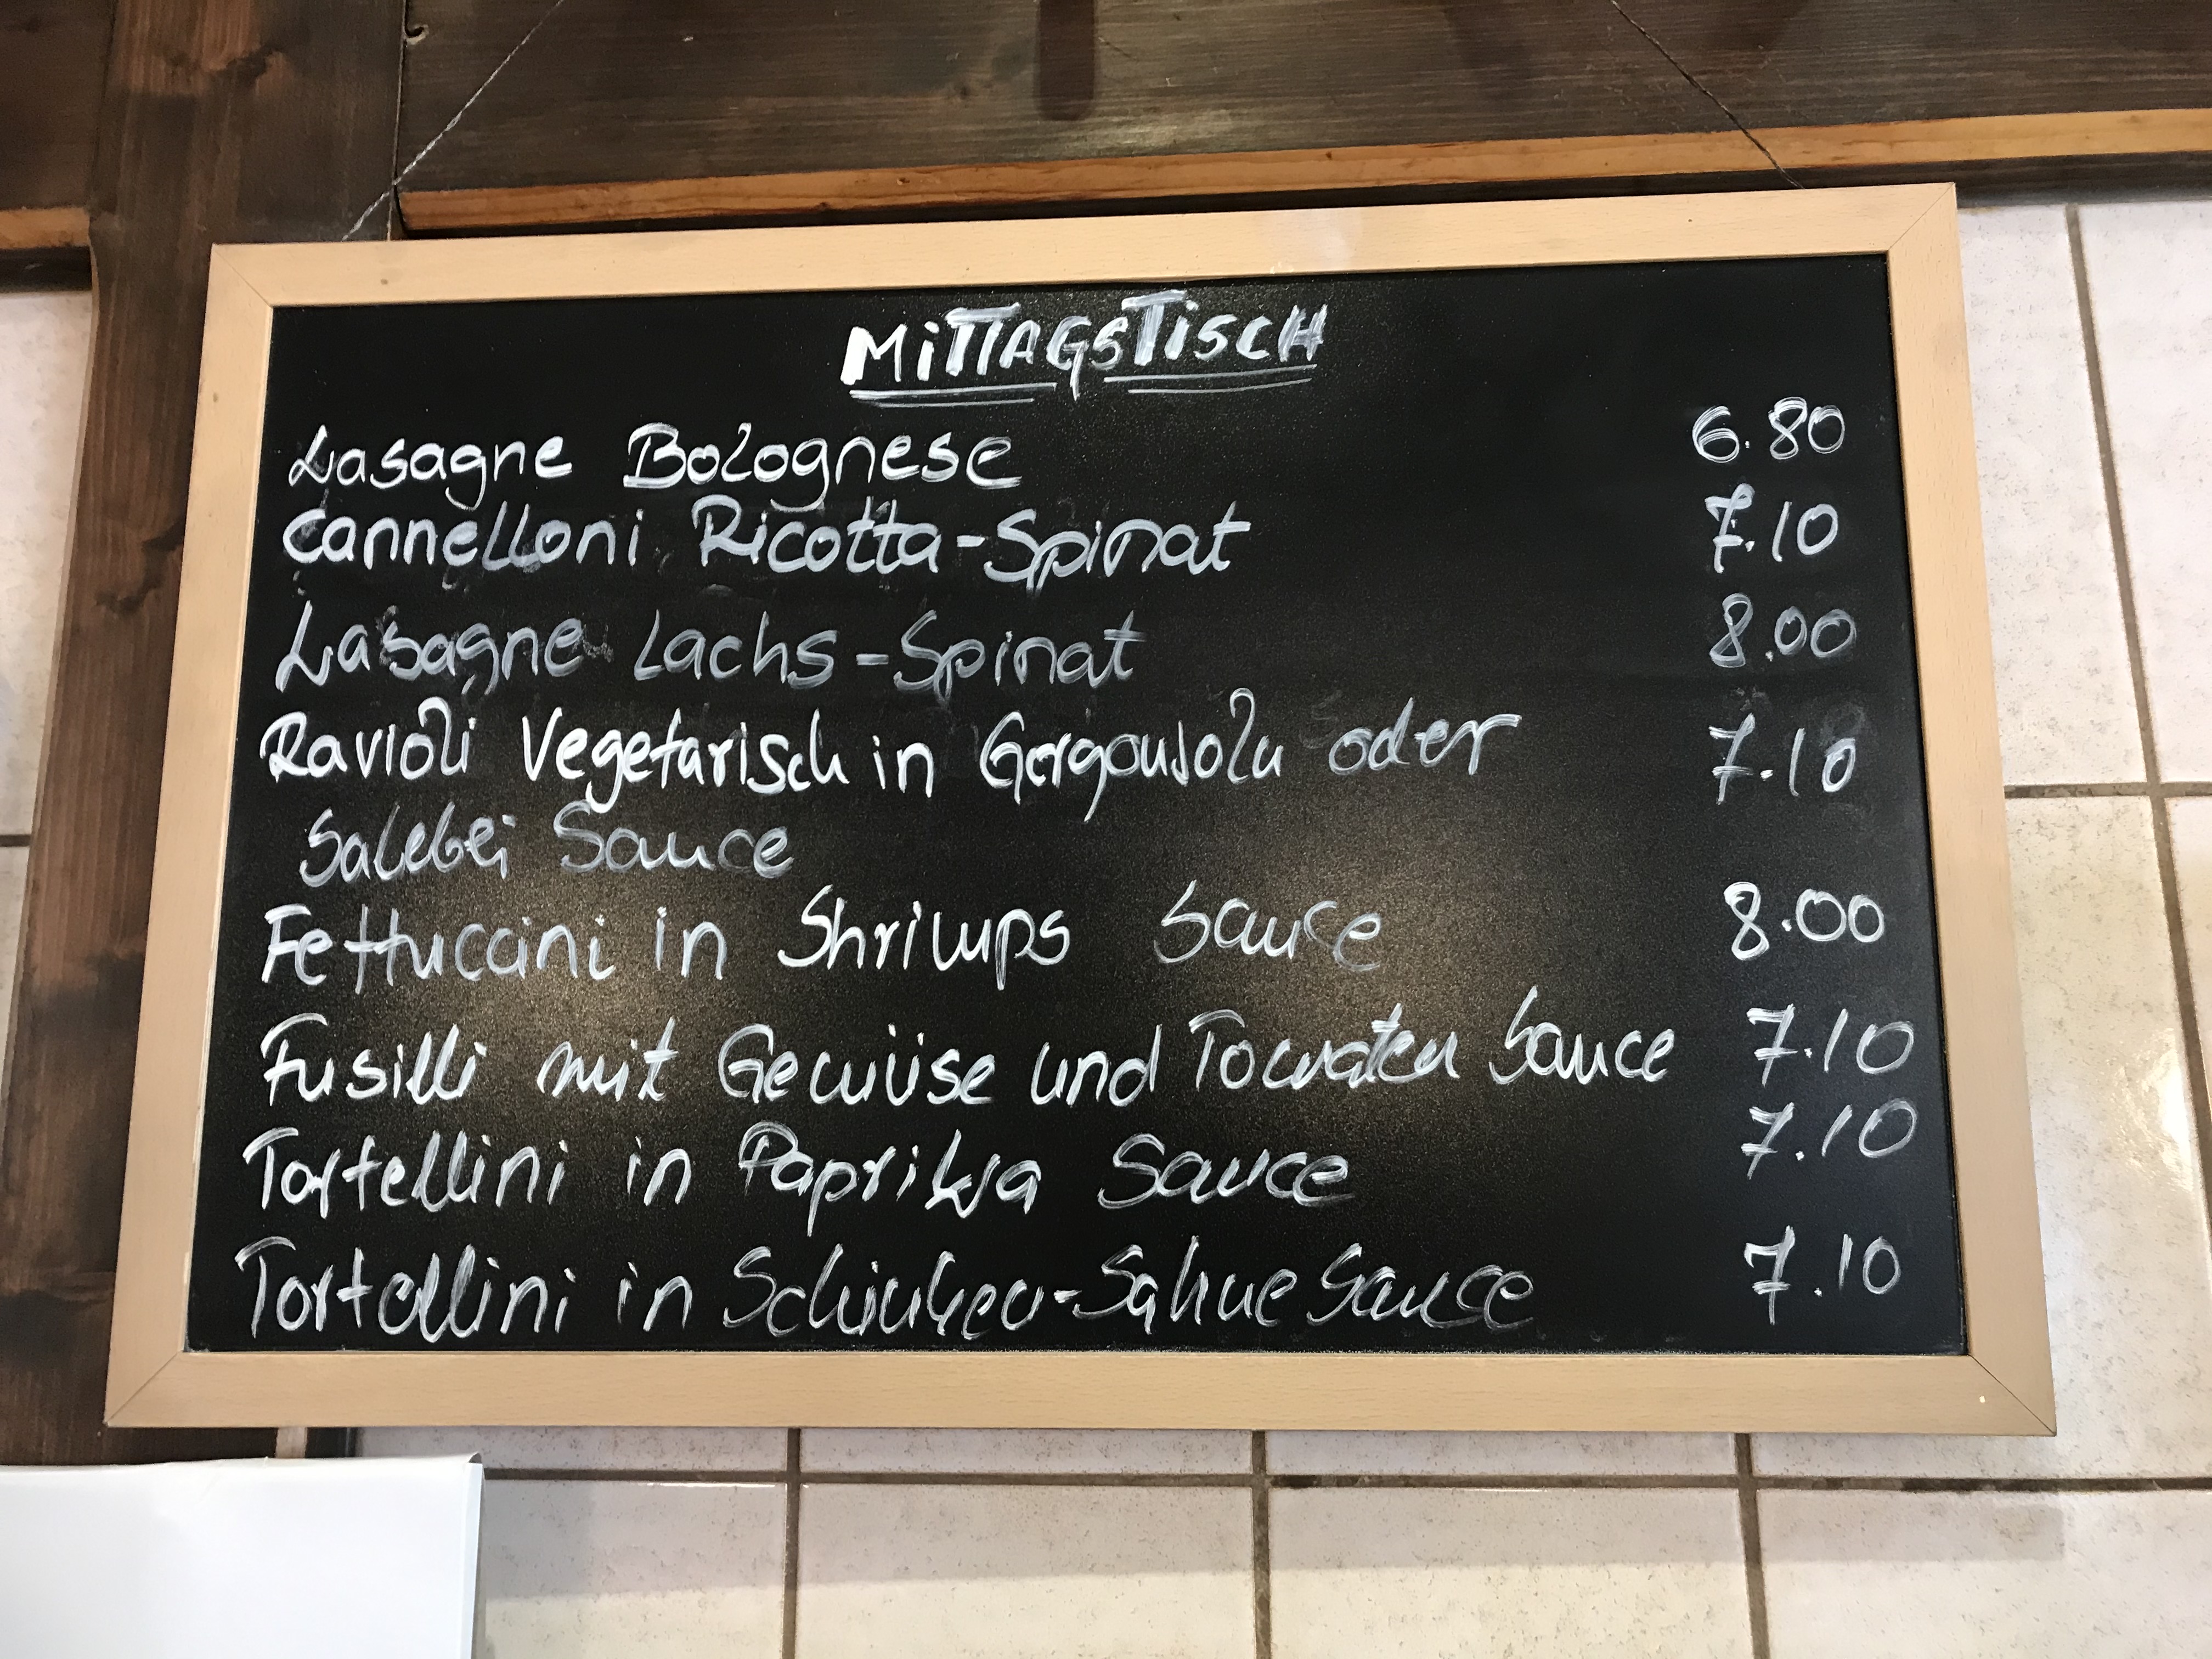 MITTAGSTISCH
Lasagne Bolognese 6.80
Cannelloni Ricotta-Spinat 7.10
Lasagne Lachs-Spinat 8.00
Ravioli Vegetarisch in Gorgonzola oder 7.10
Salbei Sauce
Fettuccini in Shrimps Sauce 8.00
Fusilli mit Gemüse und Tomaten Sauce 7.10
Tortellini in Paprika Sauce 7.10
Tortellini in Schinken-Sahne Sauce 7.10